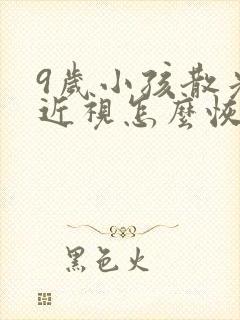 9歲小孩散光
近視怎麼恢
黑色火